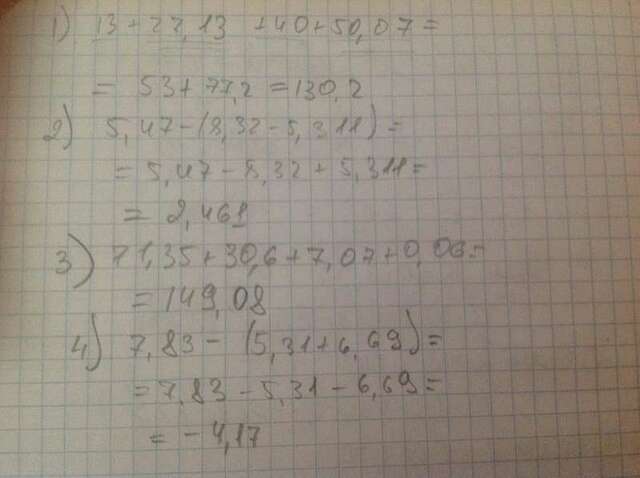 1) 13+27,13 +40+50,07=
= 53+77,2 =130,2
2) 5,47-(8,32-5,311)=
= 5,47-8,32+5,311=
= 2,461
3) 71,35+30,6+7,07+0,06=
= 149,08
4) 7,83- (5,31+6,69)=
=7,83-5,31-6,69=
= -4,17